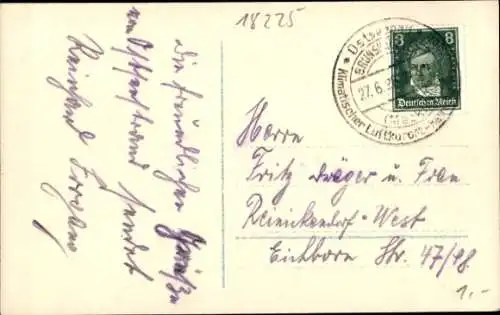 18225
Die freundlichen Grüße
vom Ostseestrand sendet
Reinhard
Ostseebad
27.6.
Klimatischer Luftkurort
8 8
Deutsches Reich
Herrn
Fritz Dräger u. Frau
Reinickendorf-West
Eichborn Str. 47/48
1.-